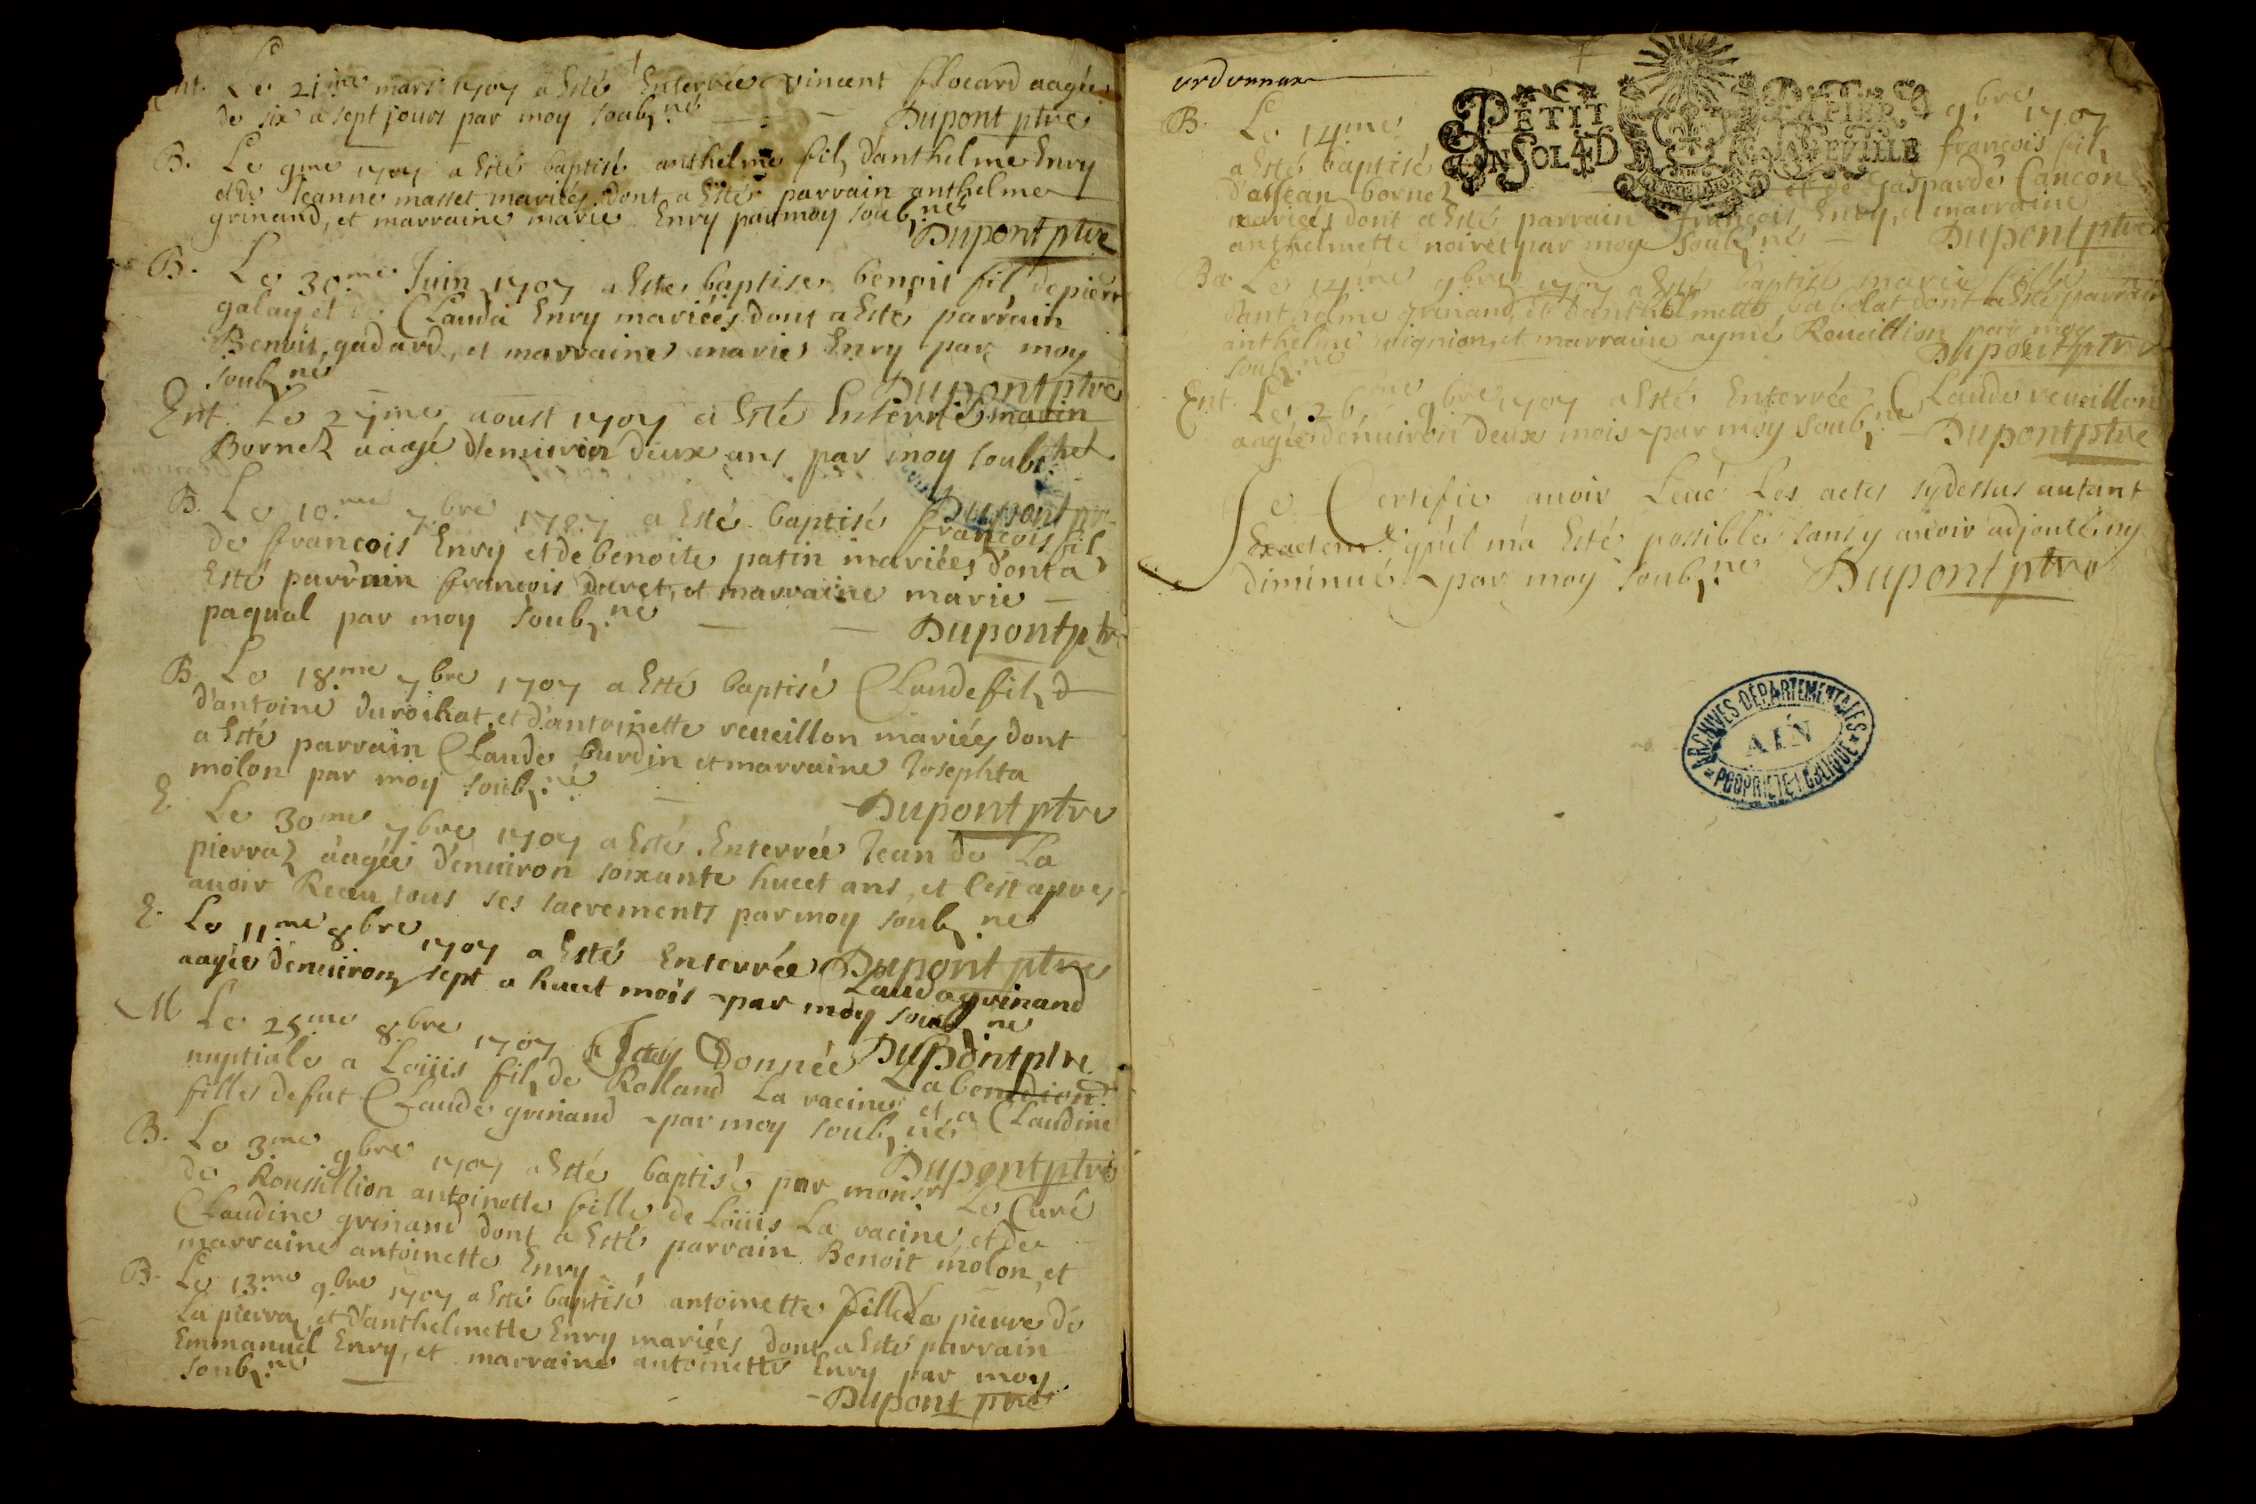 Ent. Le 21.me mars 1707 a Esté Enterrée vincent flocard aagée
de six a sept jours par moy soubz.né Dupont ptre
B. Le 9me 1707 a Esté baptisé anthelme filz d'anthelme Envy
et de Jeanne masset mariées dont a Esté parrain anthelme
grinand, et marraine marie Envy par moy soubz.né
Dupont ptre
B. Le 30.me Juin 1707 a Este baptise benoit fil de pierre
galay et de Clauda Envy mariées dont a Esté parrain
Benoit gadard, et marraine marie Envy par moy
soubz.né Dupont ptre
Ent. Le 27me aoust 1707 a Esté Enterré
Bornez aagé d'enuiron deux ans par moy soubz.né
Dupont ptre
B. Le 10.me 7.bre 1707 a Esté baptisé françois filz
de francois Envy et de benoite patin mariées dont a
Esté parrain françois ducret, et marraine marie
paqual par moy soubz.né Dupont ptre
B. Le 18me 7bre 1707 a Esté baptisé Claude filz d
d'antoine durochat, et d'antoinette reueillon mariées dont
a Esté parrain Claude burdin et marraine Josephta
molon par moy soubz.né
Dupont ptre
E. Le 30me 7bre 1707 a Esté Enterrée Jean de La
pierraz aagée d'enuiron soixante huect ans, et c'est apres
auoir Receu tous ses sacrements par moy soubz.né
Dupont ptre
E. Le 11.me 8bre 1707 a Esté Enterrée Clauda grinand
aagée d'enuiron sept a huect mois par moy soubz.né
Dupont ptre
M Le 25me 8bre 1707 Donnée La
nuptiale a Loüis filz de Rolland La racine et a Claudine
fille de fut Claude grinand par moy soubz.né
Dupont ptre
B. Le 3me 9bre 1707 a Esté baptisé par monsr Le Curé
de Roussillion antoinette fille de Loüis La racine, et de
Claudine grinand dont a Esté parrain Benoit molon, et
marraine antoinette Envy
B. Le 13.me 9.bre 1707 a Esté baptisé antoinette fille a pierre de
La pierraz, et d'anthelmette Envy mariées dont a Esté parrain
Emmanuel Envy, et marraine antoinette Envy par moy
soubz.né
Dupont ptre
ordonnance
PETIT PAPIER
UN SOL 4 D
B. Le 14me 9.bre 1707
a Esté baptisé françois filz
Jean bornez et de gasparde Cancon
mariées dont a Esté parrain françois Envy, et marraine
anthelmette noiret par moy soubz.né Dupont ptre
Ba. Le 14me 9bre 1707 a Esté baptisé marie fille
d'anthelme grinand, et d'anthelmette babolat dont a Esté parrain
anthelme et marraine aymé Reueillion par moy
soubz.né Dupont ptre
Ent. Le 26me 9bre 1707 a Esté Enterrée Claude reueillon
aagée d'enuiron deux mois par moy soubz.né Dupont ptre
Je Certifie auoir Leué Les actes sydessus autant
Exactemt. qu'il ma Esté possible sans y auoir adjouté ny
diminué par moy soubz.né Dupont ptre
ARCHIVES DÉPARTEMENTALES
AIN
PROPRIÉTÉ PUBLIQUE